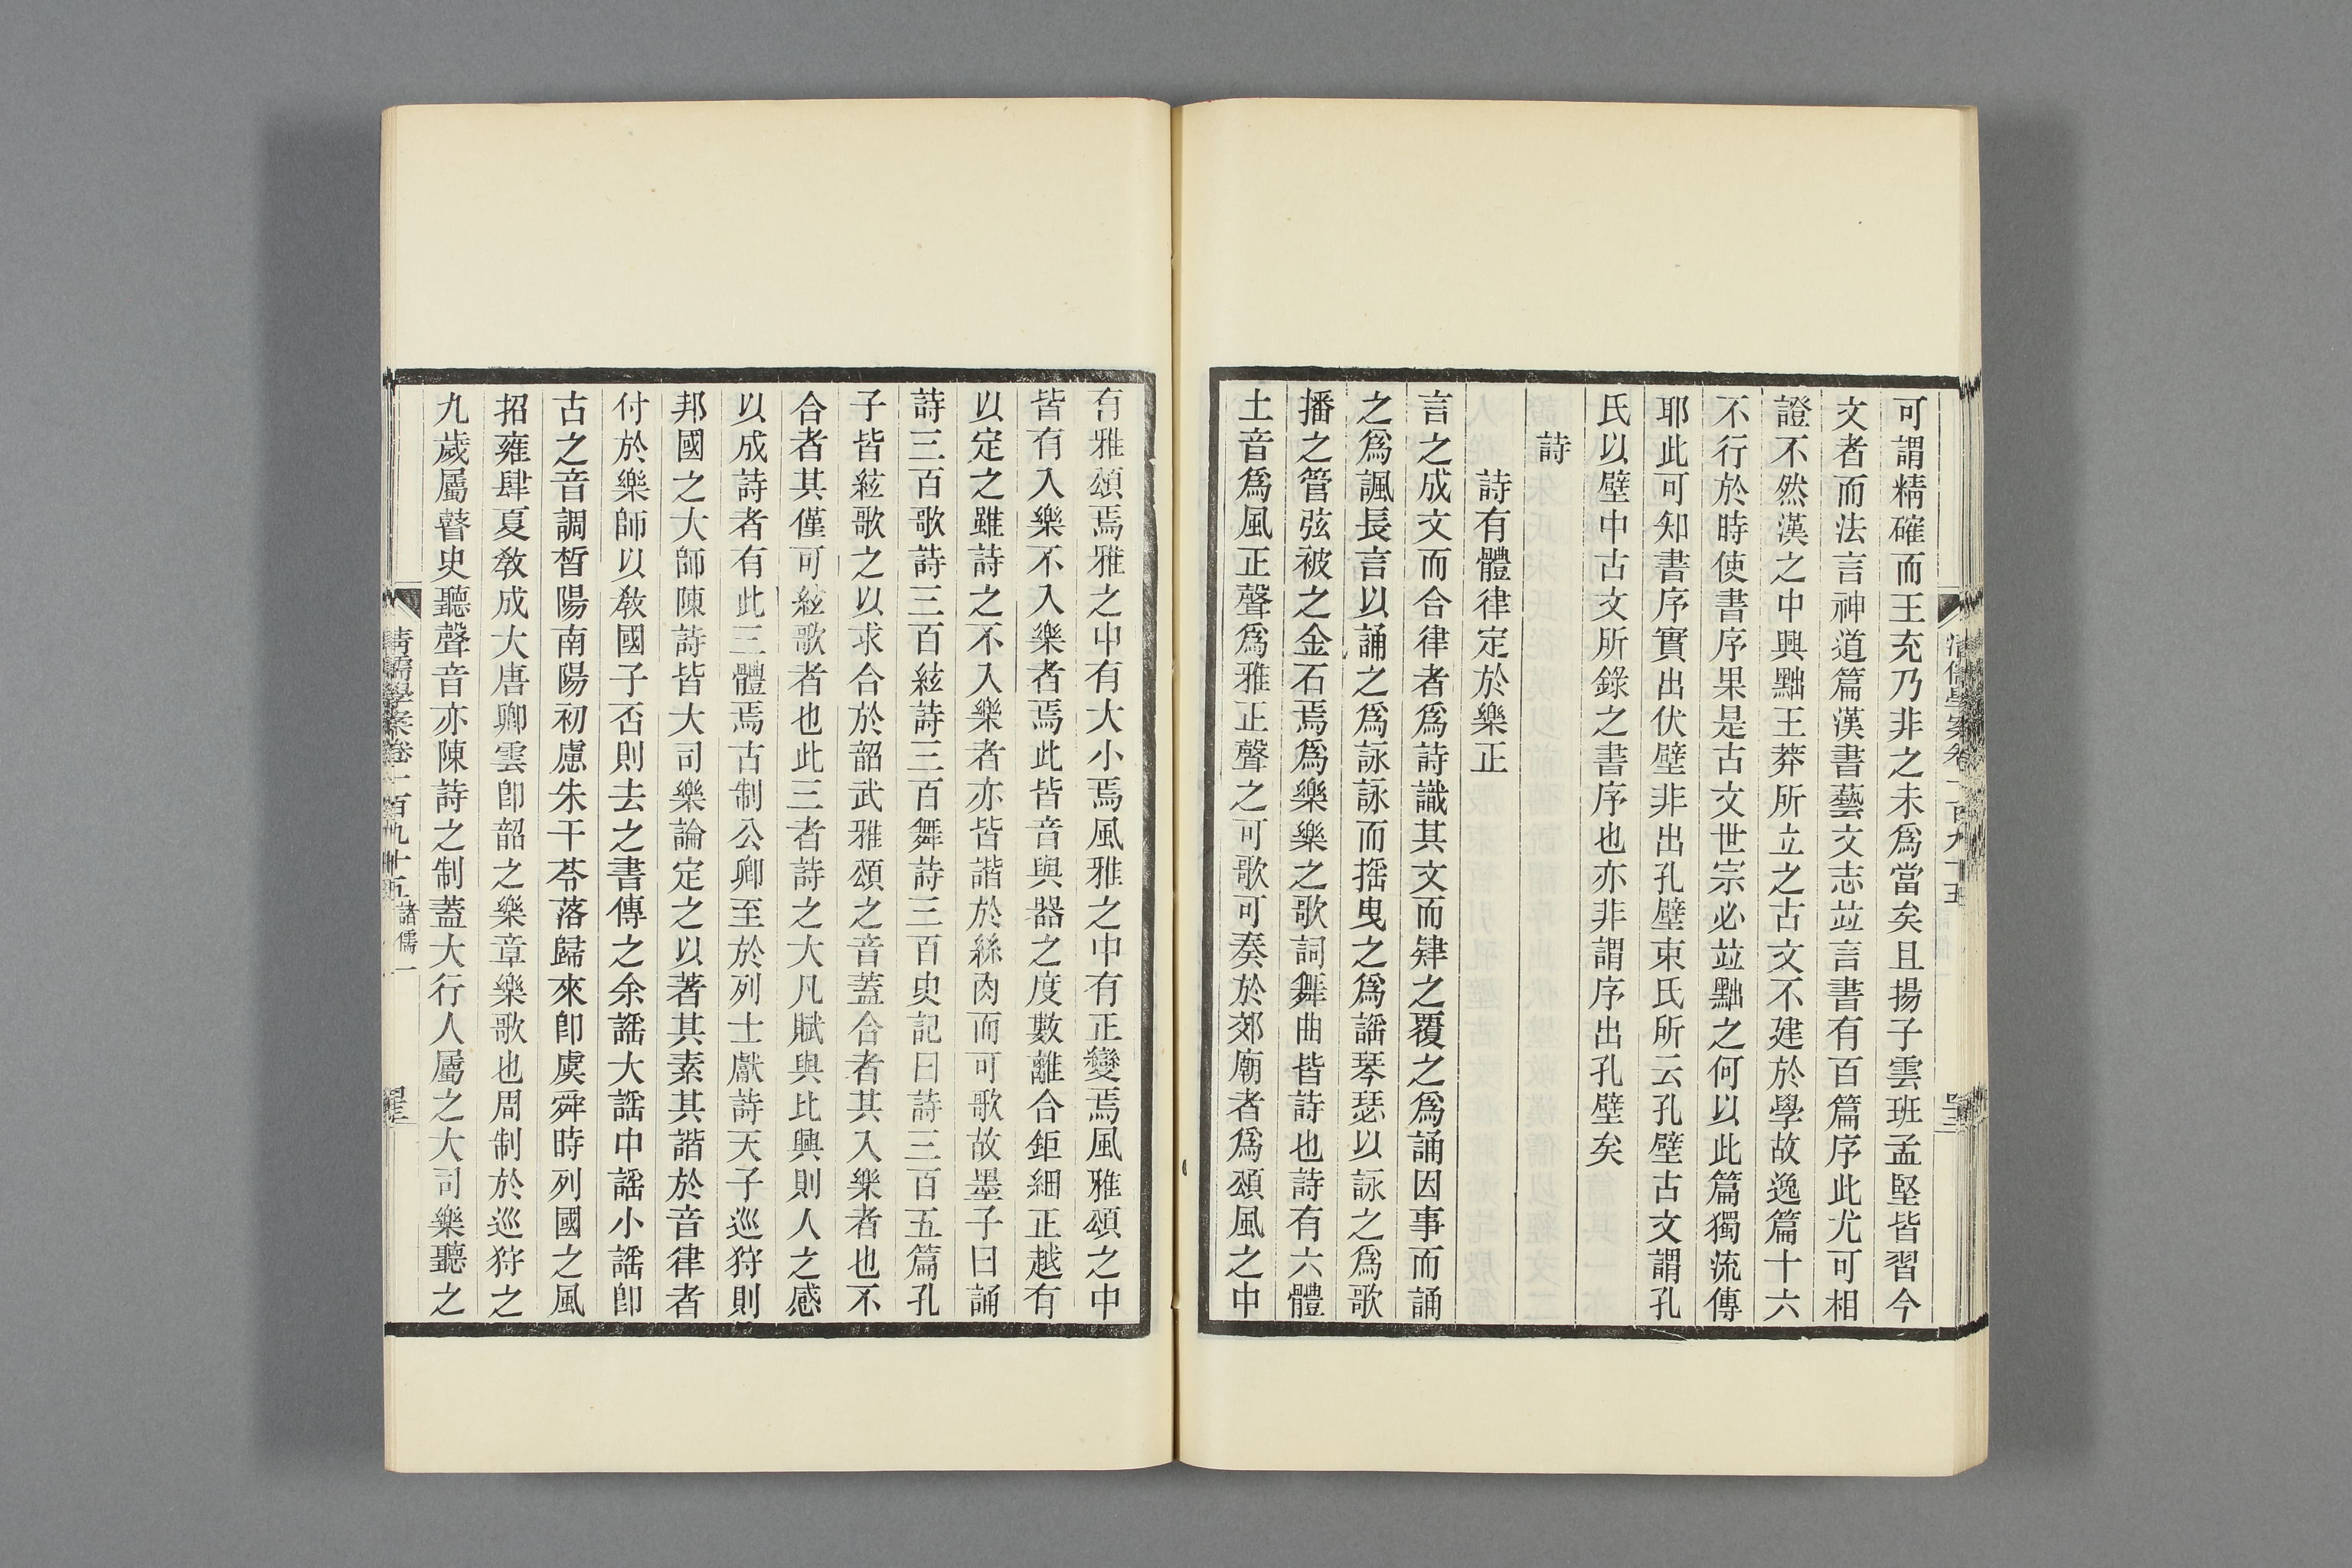 可謂精確而王充乃非之未爲當矣且揚子雲班孟堅皆習今
文者而法言神道篇漢書藝文志竝言書有百篇序此尤可相
證不然漢之中興黜王莽所立之古文不建於學故逸篇十六
不行於時使書序果是古文世宗必竝黜之何以此篇獨流傳
耶此可知書序實出伏壁非出孔壁束氏所云孔壁古文謂孔
氏以壁中古文所錄之書序也亦非謂序出孔壁矣
詩
詩有體律定於樂正
言之成文而合律者爲詩識其文而肄之覆之爲誦因事而誦
之爲諷長言以誦之爲詠詠而摇曳之爲謡琴瑟以詠之爲歌
播之管弦被之金石焉爲樂樂之歌詞舞曲皆詩也詩有六體
土音爲風正聲爲雅正聲之可歌可奏於郊廟者爲頌風之中
有雅頌焉雅之中有大小焉風雅之中有正變焉風雅頌之中
皆有入樂不入樂者焉此皆音與器之度數離合鉅細正越有
以定之雖詩之不入樂者亦皆諧於絲肉而可歌故墨子曰誦
詩三百歌詩三百絃詩三百舞詩三百史記曰詩三百五篇孔
子皆絃歌之以求合於韶武雅頌之音蓋合者其入樂者也不
合者其僅可絃歌者也此三者詩之大凡賦與比興則人之感
以成詩者有此三體焉古制公卿至於列士獻詩天子巡狩則
邦國之大師陳詩皆大司樂論定之以著其素其諧於音律者
付於樂師以敎國子否則去之書傳之余謡大謡中謡小謡卽
古之音調晳陽南陽初慮朱干苓落歸來卽虞舜時列國之風
招雍肆夏敎成大唐卿雲卽韶之樂章樂歌也周制於巡狩之
九歲屬瞽史聽聲音亦陳詩之制蓋大行人屬之大司樂聽之
清儒學案卷一百九十五 諸儒一